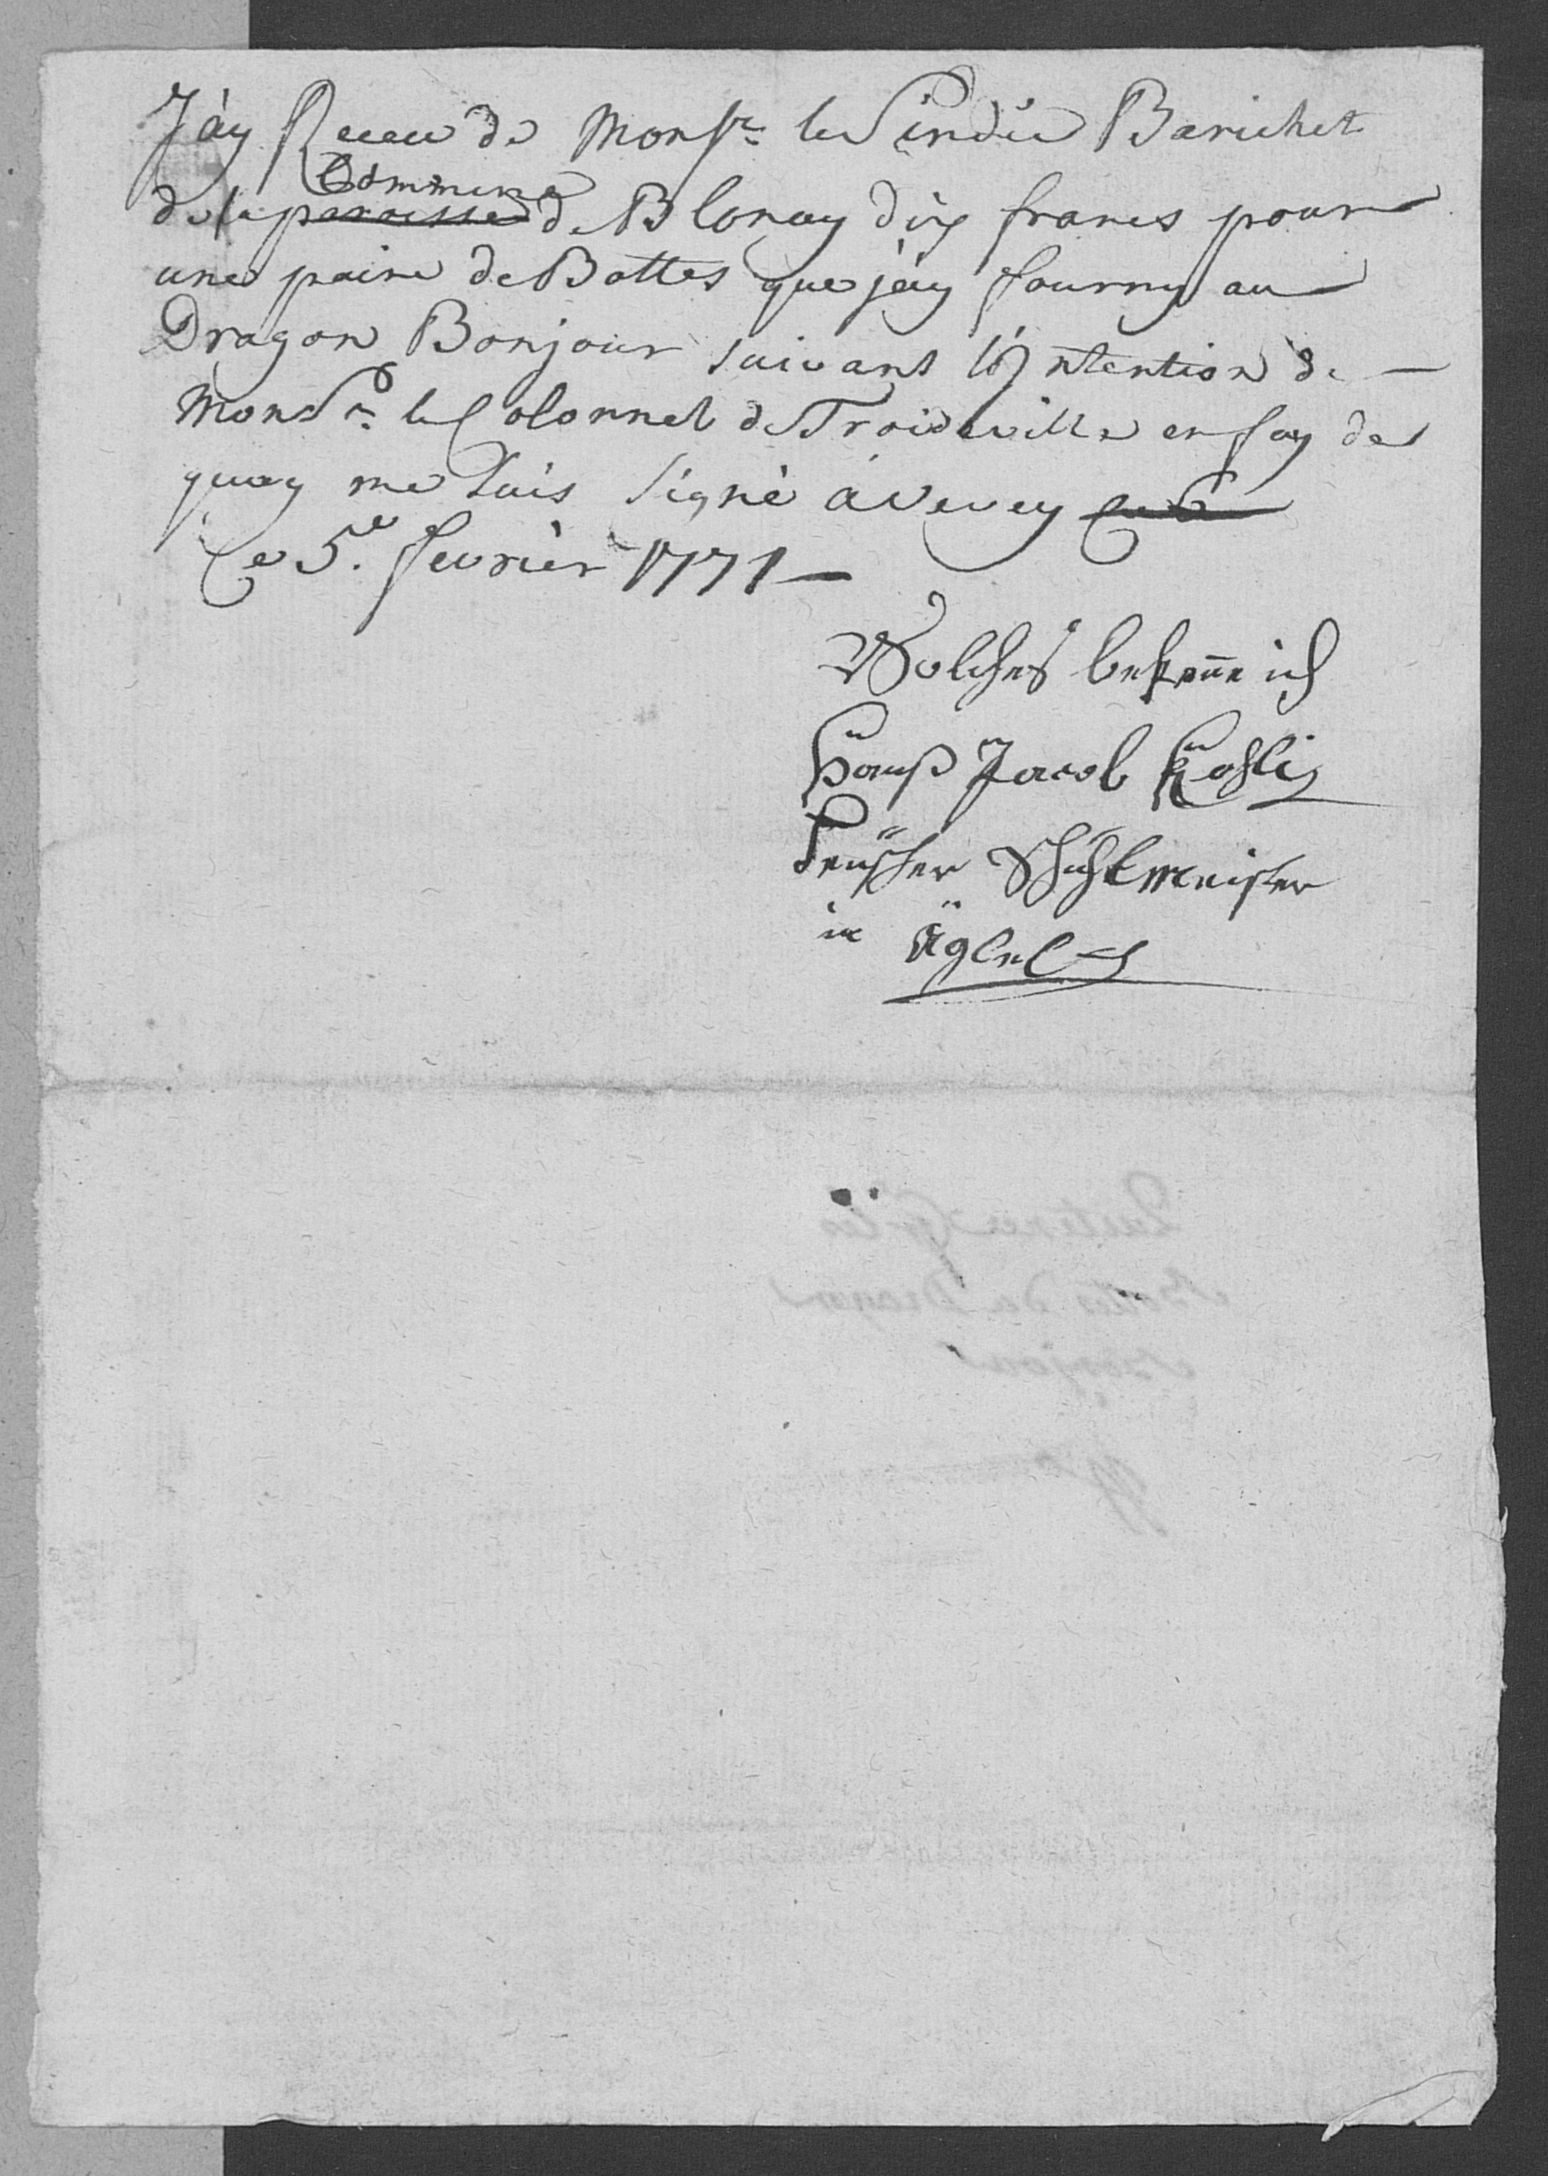 J'ay Receu de Monsr. le Sindic Barichet
Commune
de la paroisse de Blonay dix francs pour
une paire de Bottes que j'ay fourny au
Dragon Bonjour suivant l'Intention de —
Monsr. le Colonnel de Troideville en foy de
quoy me suis signé à Vevey
Ce 5.e fevrier 1771 —
Wolches bekenne ich
Hanß Jacob Kohli
Teüscher Schuhlmeister
in Äglen